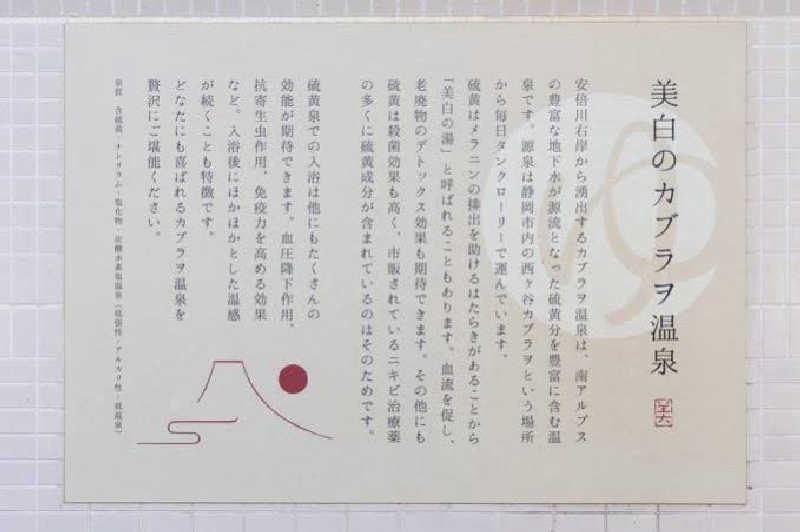 美白のカブラヲ温泉
ゆ
安倍川右岸から湧出するカブラヲ温泉は、南アルプス
の豊富な地下水が源流となった硫黄分を豊富に含む温
泉です。源泉は静岡市内の西ヶ谷カブラヲという場所
から毎日タンクローリーで運んでいます。
硫黄はメラニンの排出を助けるはたらきがあることから
「美白の湯」と呼ばれることもあります。血流を促し、
老廃物のデトックス効果も期待できます。その他にも
硫黄は殺菌効果も高く、市販されているニキビ治療薬
の多くに硫黄成分が含まれているのはそのためです。
硫黄泉での入浴は他にもたくさんの
効能が期待できます。血圧降下作用、
抗寄生虫作用、免疫力を高める効果
など。入浴後にほかほかとした温感
が続くことも特徴です。
どなたにも喜ばれるカブラヲ温泉を
贅沢にご堪能ください。
泉質 含硫黄-ナトリウム-塩化物・炭酸水素塩温泉(低張性・アルカリ性・低温泉)